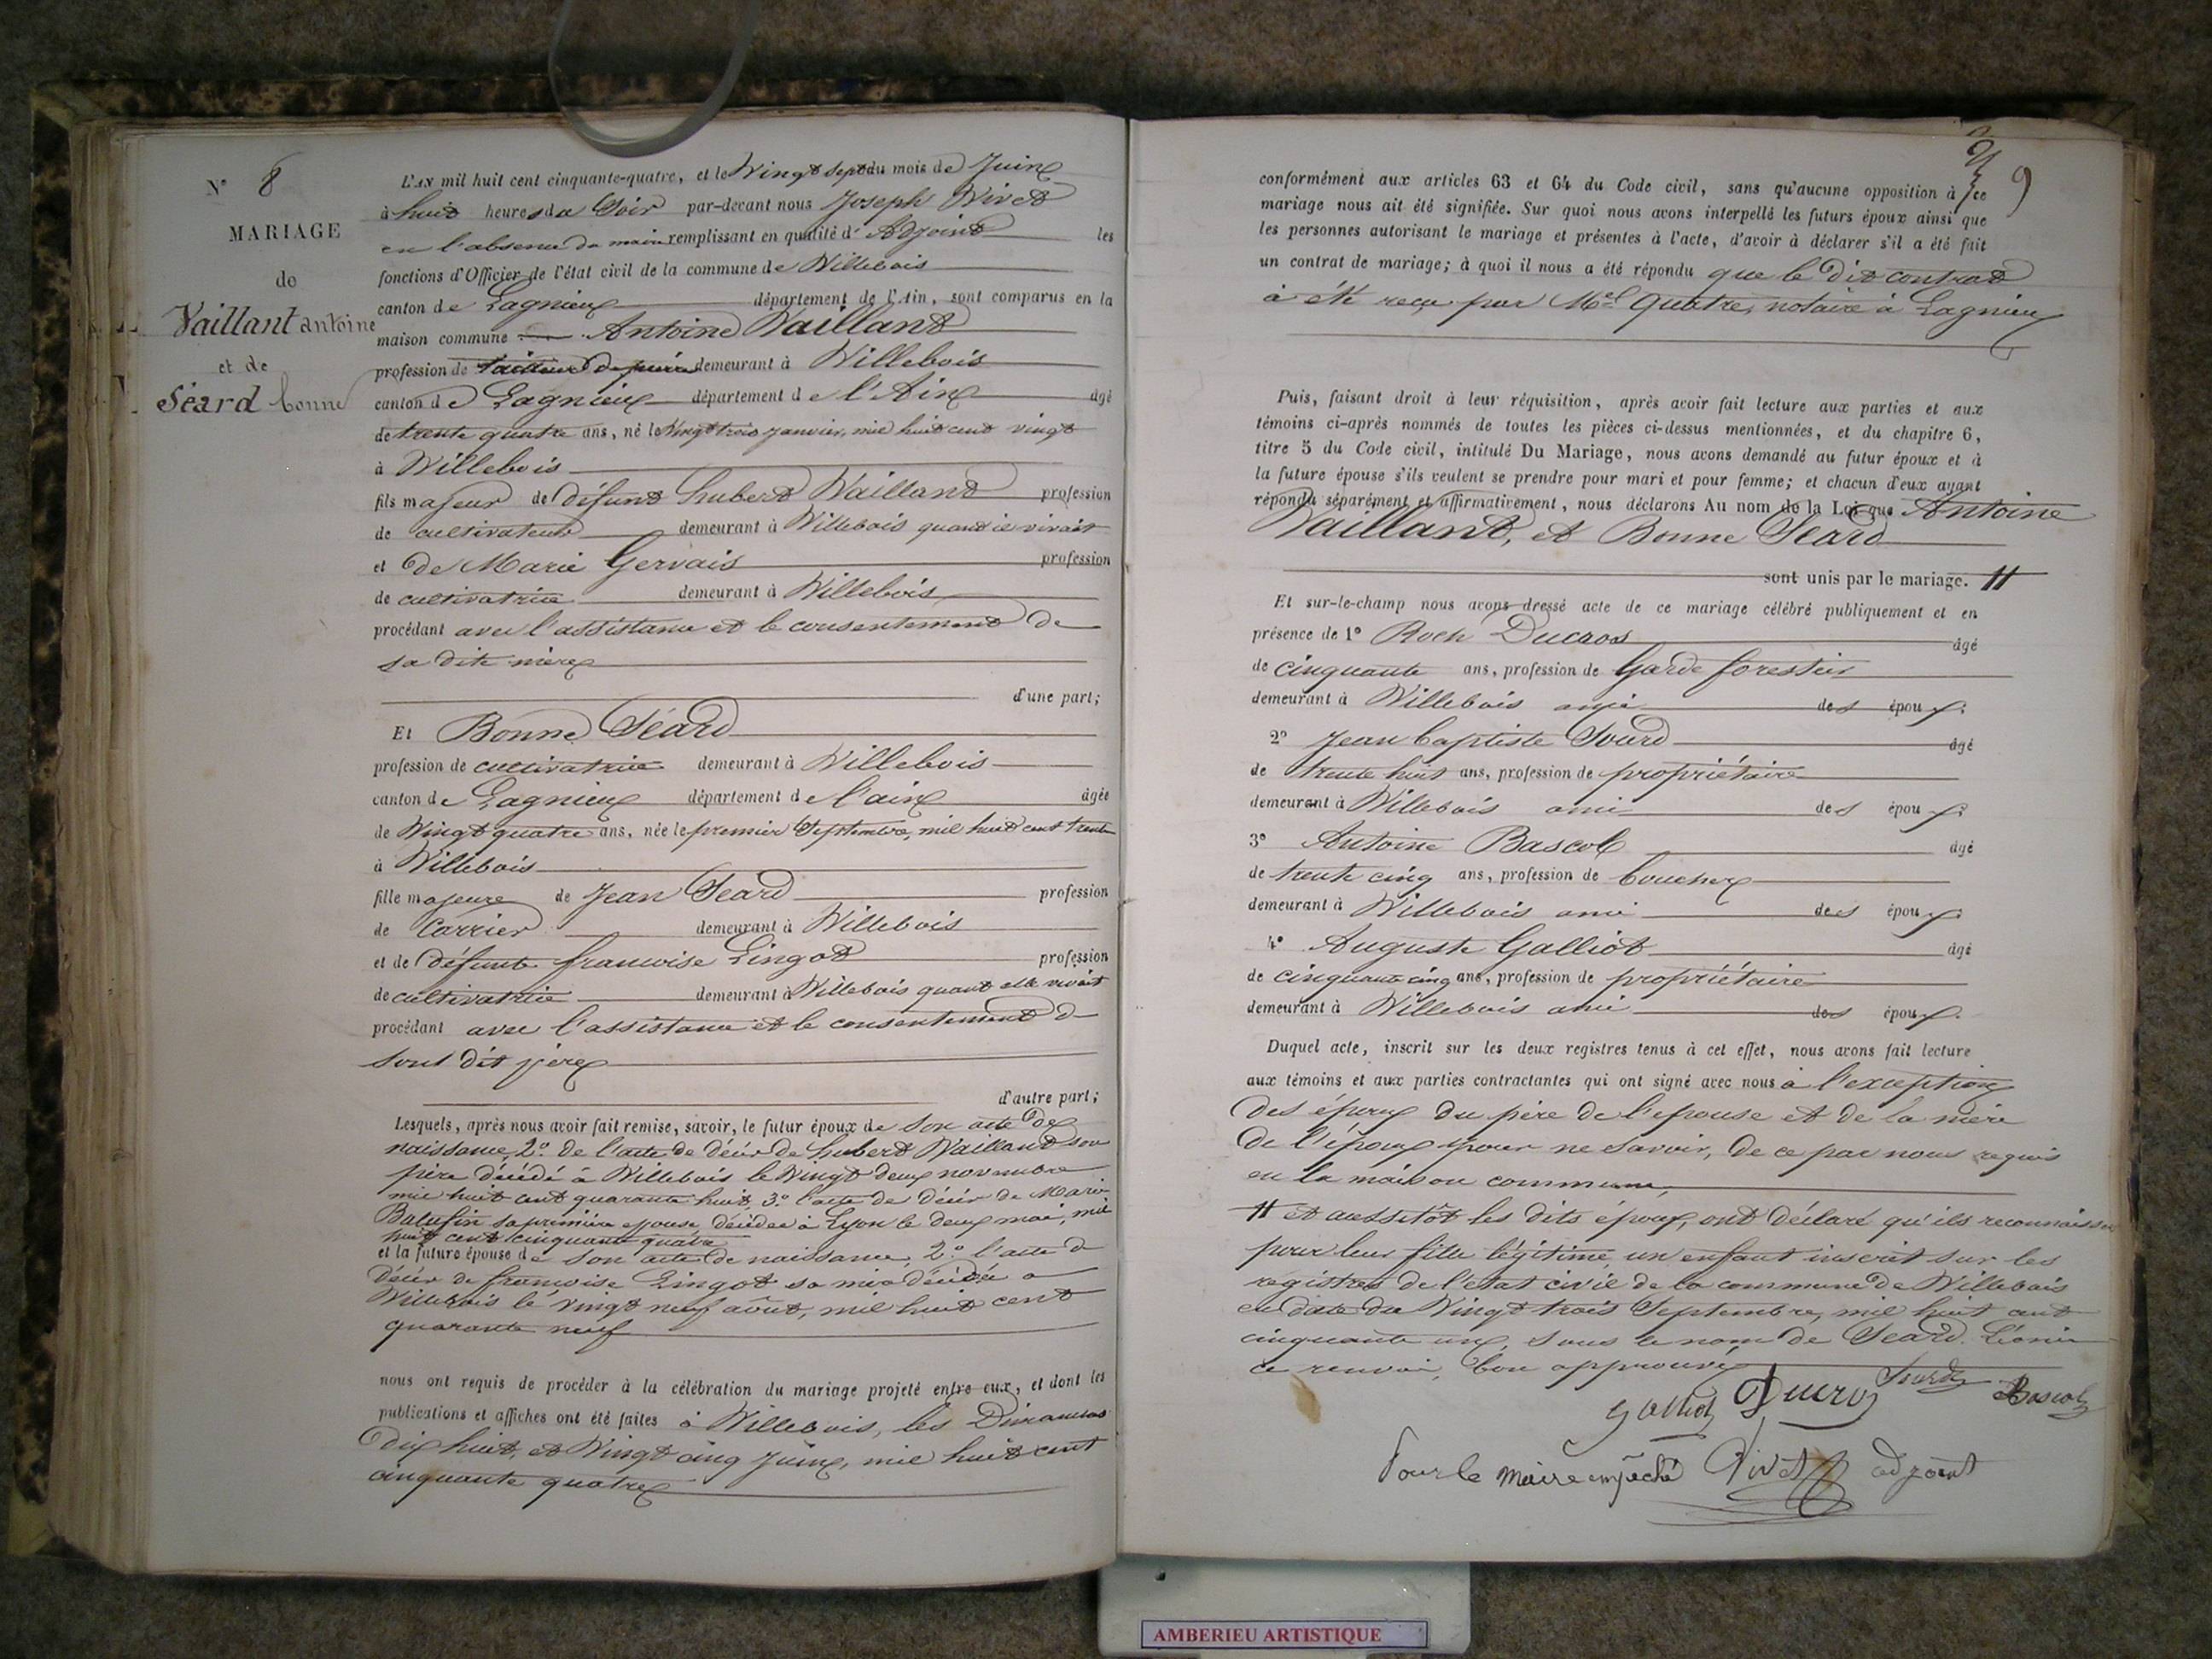 N° 8
MARIAGE
de
Vaillant antoine
et de
Séard bonne
L'AN mil huit cent cinquante-quatre, et le Vingt sept du mois de Juin
à huit heures du Soir par-devant nous Joseph Vivet
en l'absence du maire remplissant en qualité d' Adjoint les
fonctions d'Officier de l'état civil de la commune de Villebois
canton de Lagnieux département de l'Ain, sont comparus en la
maison commune Antoine Vaillant
profession de tailleur de pierre demeurant à Villebois
canton de Lagnieux département de l'Ain âgé
de trente quatre ans, né le Vingt trois janvier, mil huit cent vingt
à Villebois
fils majeur de défunt hubert Vaillant profession
de cultivateur demeurant à Villebois quand il vivait
et de Marie Gervais profession
de cultivatrice demeurant à Villebois
procédant avec l'assistance et le consentement de
sa dite mère
d'une part;
Et Bonne Séard
profession de cultivatrice demeurant à Villebois
canton de Lagnieux département de l'ain âgée
de Vingt quatre ans, née le premier Septembre, mil huit cent trente
à Villebois
fille majeure de Jean Seard profession
de Carrier demeurant à Villebois
et de défunte francoise Lingot profession
de cultivatrice demeurant à Villebois quant elle vivait
procédant avec l'assistance et le consentement de
sont dit père
d'autre part;
Lesquels, après nous avoir fait remise, savoir, le futur époux de son acte de
naissance, 2° de l'acte de décès de hubert Vaillant son
père décédé à Villebois le Vingt deux novembre
mil huit cent quarante huit, 3° l'acte de décès de Marie
sa première epouse, décédée à Lyon le deux mai, mil
huit cent cinquante quatre
et la future épouse de son acte de naissance, 2° l'acte de
décès de francoise Lingot sa mère décédée a
Villebois le vingt neuf août, mil huit cent
quarante neuf
nous ont requis de procéder à la célébration du mariage projeté entre eux, et dont les
publications et affiches ont été faites à Villebois, les Dimanches
Dix huit, et Vingt cinq Juin, mil huit cent
cinquante quatre
9
conformément aux articles 63 et 64 du Code civil, sans qu'aucune opposition à ce
mariage nous ait été signifiée. Sur quoi nous avons interpellé les futurs époux ainsi que
les personnes autorisant le mariage et présentes à l'acte, d'avoir à déclarer s'il a été fait
un contrat de mariage; à quoi il nous a été répondu que le dit contrat
à été reçu par Quatre, notaire à Lagnieux
Puis, faisant droit à leur réquisition, après avoir fait lecture aux parties et aux
témoins ci-après nommés de toutes les pièces ci-dessus mentionnées, et du chapitre 6,
titre 5 du Code civil, intitulé Du Mariage, nous avons demandé au futur époux et à
la future épouse s'ils veulent se prendre pour mari et pour femme; et chacun d'eux ayant
répondu séparément et affirmativement, nous déclarons Au nom de la Loi que Antoine
Vaillant, et Bonne Seard
sont unis par le mariage. H
Et sur-le-champ nous avons dressé acte de ce mariage célébré publiquement et en
présence de 1° Roch Ducros âgé
de cinquante ans, profession de Garde forestier
demeurant à Villebois ami des époux;
2° Jean baptiste Sourd âgé
de trente huit ans, profession de propriétaire
demeurant à Villebois ami des époux;
3° Antoine Bascol âgé
de trente cinq ans, profession de boucher
demeurant à Villebois ami des époux;
4° Auguste Galliot âgé
de cinquante cinq ans, profession de propriétaire
demeurant à Villebois ami des époux.
Duquel acte, inscrit sur les deux registres tenus à cet effet, nous avons fait lecture
aux témoins et aux parties contractantes qui ont signé avec nous à l'exception
des époux du père de l'epouse et de la mère
de l'époux pour ne savoir, de ce par nous requis
en la maison commune,
H et aussitôt les dits époux, ont déclaré qu'ils reconnaissent
pour leur fille légitime, un enfant inscrit sur les
registres de l'état civil de la commune de Villebois
en date du Vingt trois Septembre, mil huit cent
cinquante un, sous le nom de Seard Léonie
ce renvoi, bon approuvé
Galliot Ducros Sourd Bascol
Pour le maire empêché Vivet adjoint
AMBERIEU ARTISTIQUE